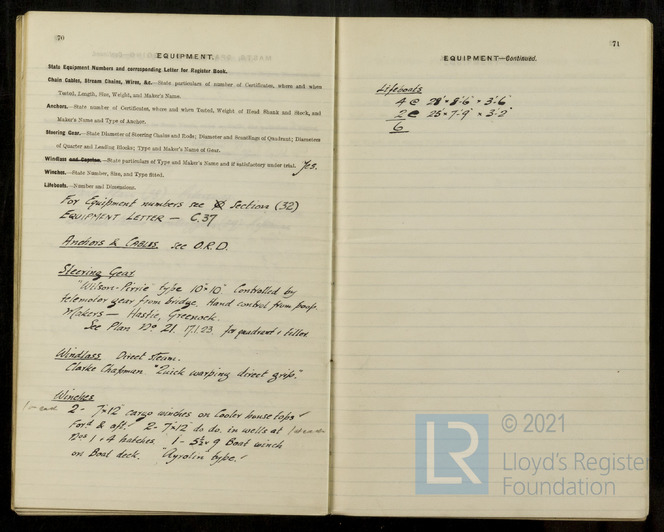 70
EQUIPMENT.
State Equipment Numbers and corresponding Letter for Register Book.
Chain Cables, Stream Chains, Wires, &c.—State particulars of number of Certificates, where and when
Tested, Length, Size, Weight, and Maker's Name.
Anchors.—State number of Certificates, where and when Tested, Weight of Head Shank and Stock, and
Maker's Name and Type of Anchor.
Steering Gear.—State Diameter of Steering Chains and Rods; Diameter and Scantlings of Quadrant; Diameters
of Quarter and Leading Blocks; Type and Maker's Name of Gear.
Windlass and Capstan.—State particulars of Type and Maker's Name and if satisfactory under trial. Yes.
Winches.—State Number, Size, and Type fitted.
Lifeboats.—Number and Dimensions.
For Equipment numbers see Section (32)
EQUIPMENT LETTER — C.37
Anchors & Cables. see O.R.D.
Steering Gear
"Wilson-Pirrie" type 10"×10" Controlled by
telemotor gear from bridge. Hand control from poop.
Makers — Hastie, Greenock.
See Plan No 21. 17.1.23. for quadrant & tiller
Windlass Direct steam.
Clarke Chapman "Quick warping direct grip."
Winches
2 - 7"×12" cargo winches on Cooler house tops
Ford & aft. 2 - 7"×12" do do. in wells at
Nos 1 & 4 hatches 1 - 5½×9 Boat winch
on Boat deck.
71
EQUIPMENT—Continued.
Lifeboats
4 @ 28' × 8'6" × 3'6"
2 @ 25' × 7'9" × 3'2"
6
© 2021
LR
Lloyd's Register
Foundation